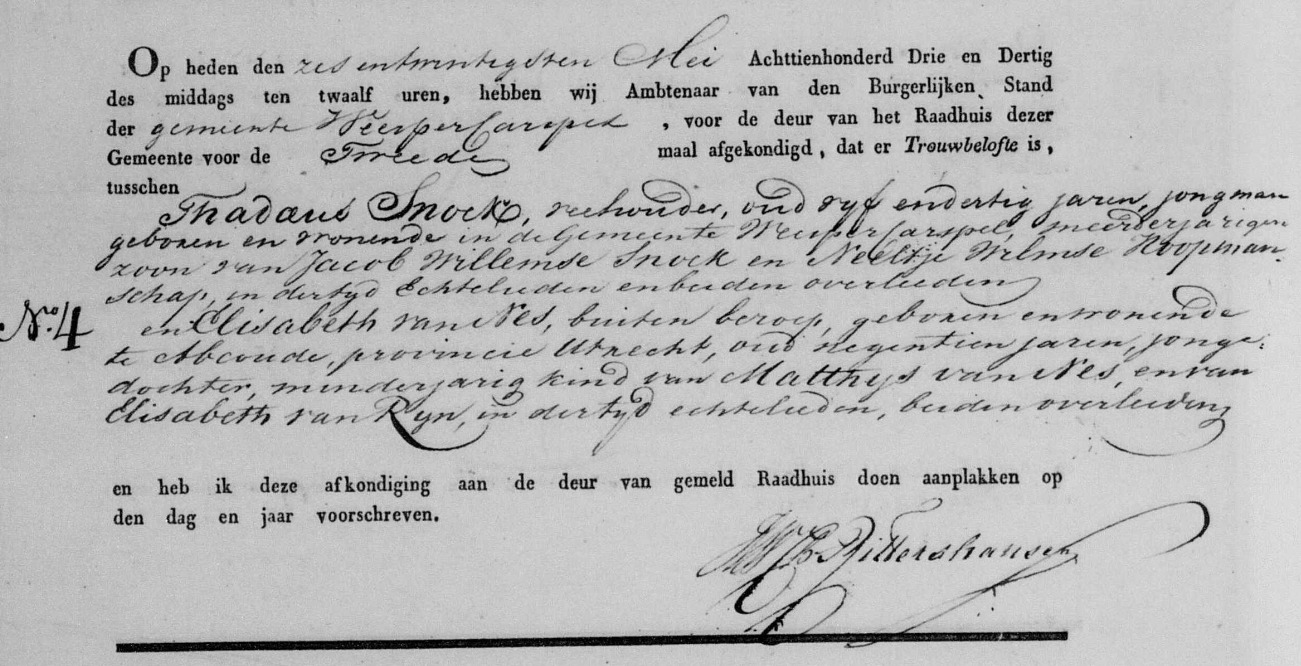 Op heden den zes entwintigsten Mei Achttienhonderd Drie en Dertig
des middags ten twaalf uren, hebben wij Ambtenaar van den Burgerlijken Stand
der gemeente WeesperCarspel , voor de deur van het Raadhuis dezer
Gemeente voor de Tweede maal afgekondigd, dat er Trouwbelofte is,
tusschen
Thadaus Snoek, veehouder, oud vyf endertig jaren, jongman
geboren en wonende in de Gemeente WeesperCarspel, meerderjarigen
zoon van Jacob Willemse Snoek en Neeltje Wilmse Koopman-
schap, in dertyd Echtelieden en beiden overleeden
No. 4
en Elisabeth van Nes, buiten beroep, geboren en wonende
te Abcoude, provincie Utrecht, oud negentien jaren, jonge-
dochter, minderjarig kind van Matthys van Nes, en van
Elisabeth van Ryn, in dertyd echtelieden, beiden overleeden
en heb ik deze afkondiging aan de deur van gemeld Raadhuis doen aanplakken op
den dag en jaar voorschreven.
Rittershausen